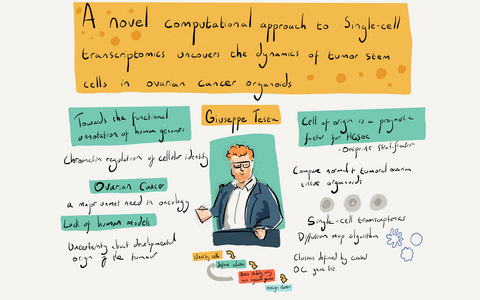 A novel computational approach to Single-cell
transcriptomics uncovers the dynamics of tumor stem
cells in ovarian cancer organoids
Towards the functional
annotation of human genomes
Chromatin regulation of cellular identity
Ovarian Cancer
a major unmet need in oncology
Lack of human models
Uncertainty about developmental
origin of the tumour
Giuseppe Testa
Identify cells
Define clusters
Assign clusters
Cell of origin is a prognostic
factor for HGSOC
Compare normal & tumoral ovarian
tissue organoids
Single-cell transcriptomics
Diffusion map algorithm
Clusters defined by
OC gene list